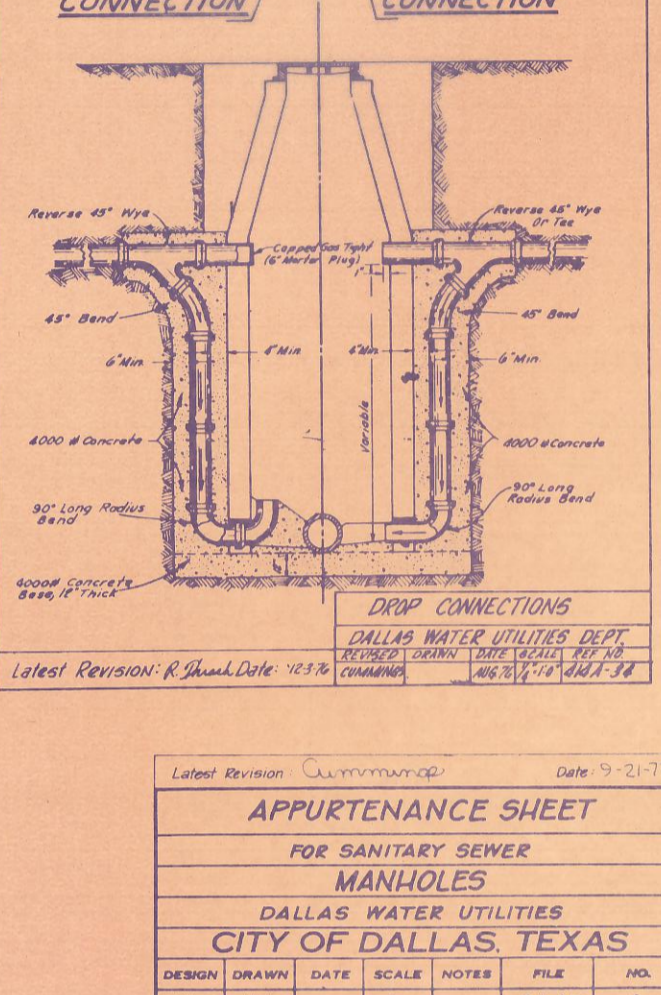 CONNECTION CONNECTION
Reverse 45° Wye
Reverse 45° Wye
Or Tee
Capped Gas Tight
(6" Mortar Plug)
1"
45° Bend
45° Bend
6" Min.
4" Min
4" Min.
6" Min.
Variable
4000 # Concrete
4000 # Concrete
90° Long Radius
Bend
90° Long
Radius Bend
4000# Concrete
Base, 12" Thick
DROP CONNECTIONS
DALLAS WATER UTILITIES DEPT.
REVISED DRAWN DATE SCALE REF NO.
CUMMINGS AUG 76
Latest Revision: R. Date: 12-3-76
Latest Revision: Cummings Date: 9-21-7
APPURTENANCE SHEET
FOR SANITARY SEWER
MANHOLES
DALLAS WATER UTILITIES
CITY OF DALLAS, TEXAS
DESIGN DRAWN DATE SCALE NOTES FILE NO.